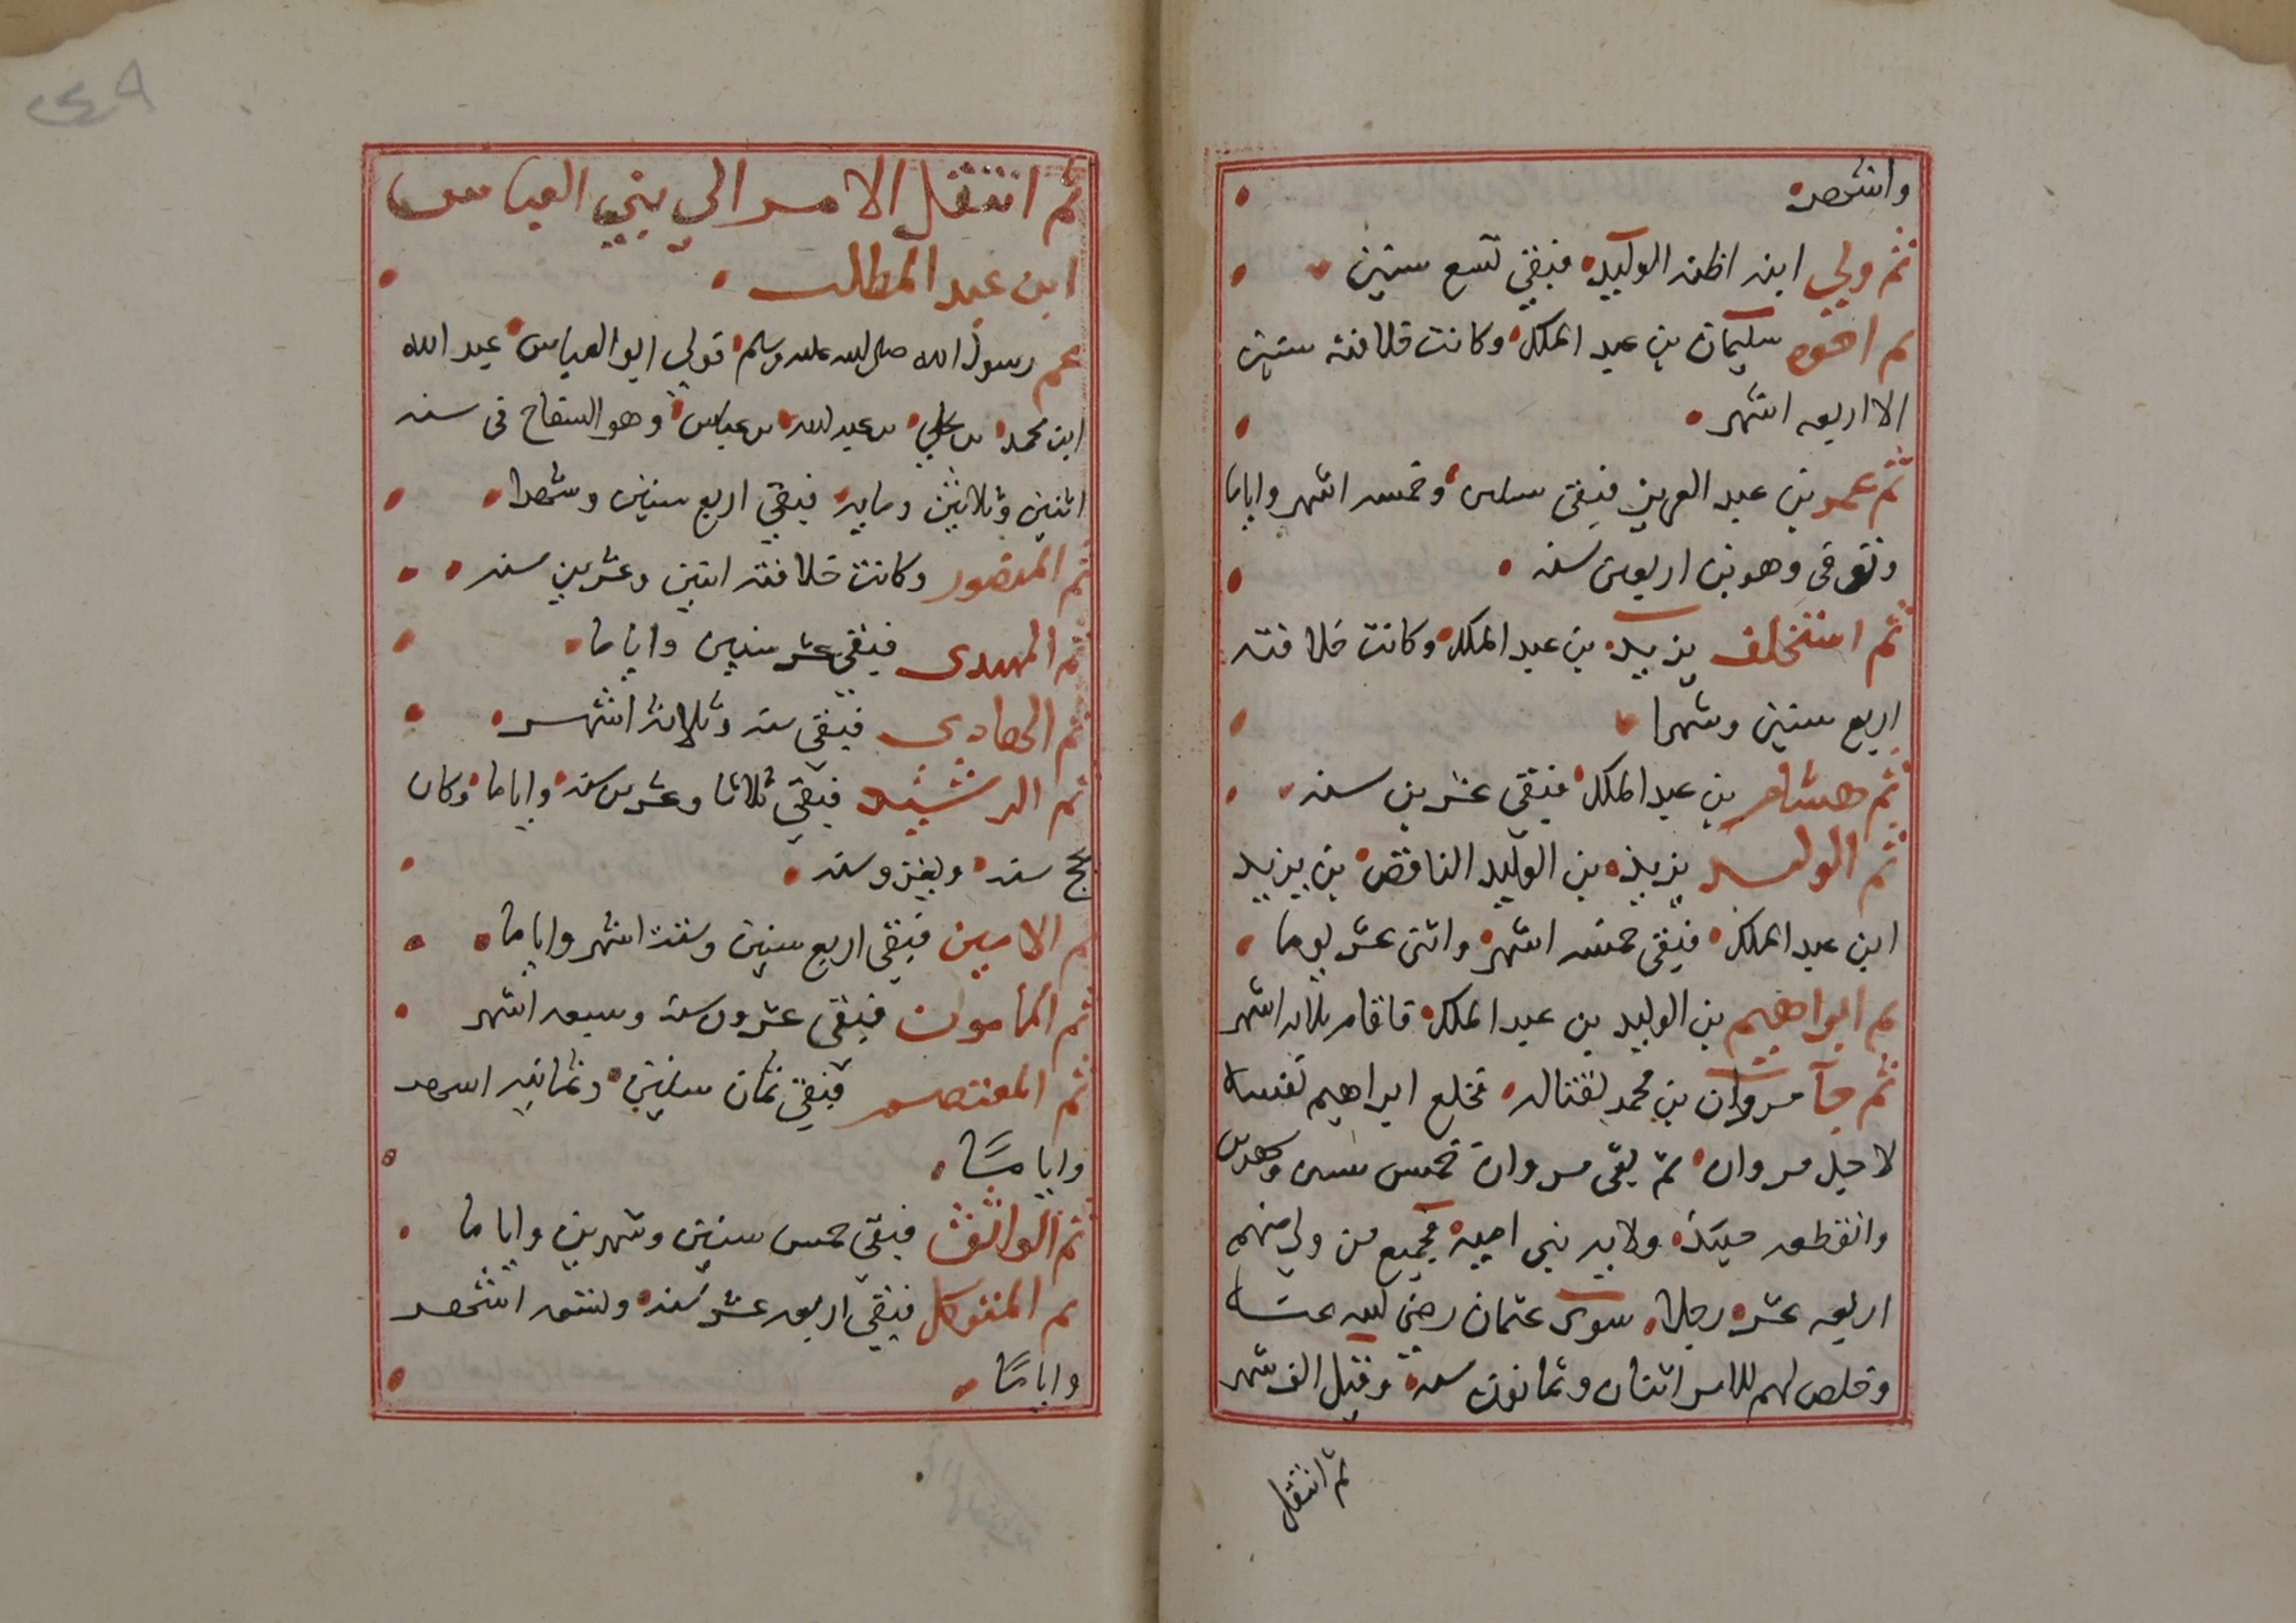 واشهر
ثم ولي ابنه اظنه الوليد فبقي تسع سنين
ثم اخوه سليمان بن عبد الملك وكانت خلافته سنتين
الا اربعه اشهر
ثم عمر بن عبد العزيز فبقى سنتين وخمسه اشهر واياما
وتوفى وهو بن اربعين سنه
ثم استخلف يزيد بن عبد الملك وكانت خلافته
اربع سنين وشهرا
ثم هشام بن عبد الملك فبقي عشرين سنه
ثم الوليد يزيد بن الوليد الناقص بن يزيد
ابن عبد الملك فبقى خمسه اشهر واثنى عشر يوما
ثم ابراهيم بن الوليد بن عبد الملك فاقام ثلاثه اشهر
ثم جآ مروان بن محمد لقتاله فخلع ابراهيم نفسه
لاجل مروان ثم بقى مروان خمس سنين وشهرين
وانقطعه حينئذ ولايه بني اميه فجميع من ولي منهم
اربعه عشر رجلا سوى عثمان رضي الله عنه
وخلص لهم للامر اثنتان وثمانون سنة وقيل الف شهر
ثم انتقل
٤٩
ثم انتقل الامر الي بني العباس
ابن عبد المطلب
عم رسول الله صلى الله عليه وسلم فولي ابو العباس عبد الله
ابن محمد بن علي بن عبد الله بن عباس وهو السفاح في سنه
اثنين وثلاثين ومايه فبقي اربع سنين وشهرا
ثم المنصور وكانت خلافته اثنين وعشرين سنه
ثم المهدى فبقي عشر سنين واياما
ثم الهادي فبقي سنه وثلاثة اشهر
ثم الرشيد فبقي ثلاثا وعشرين سنه واياما وكان
يحج سنه ويغزو سنه
ثم الامين فبقي اربع سنين وستة اشهر واياما
ثم المامون فبقى عشرون سنة وسبعه اشهر
ثم المعتصم فبقي ثمان سنين وثمانيه اشهر
واياما
ثم الواثق فبقي خمس سنين وشهرين واياما
ثم المتوكل فبقي اربعه عشر سنه وتسعه اشهر
واياما